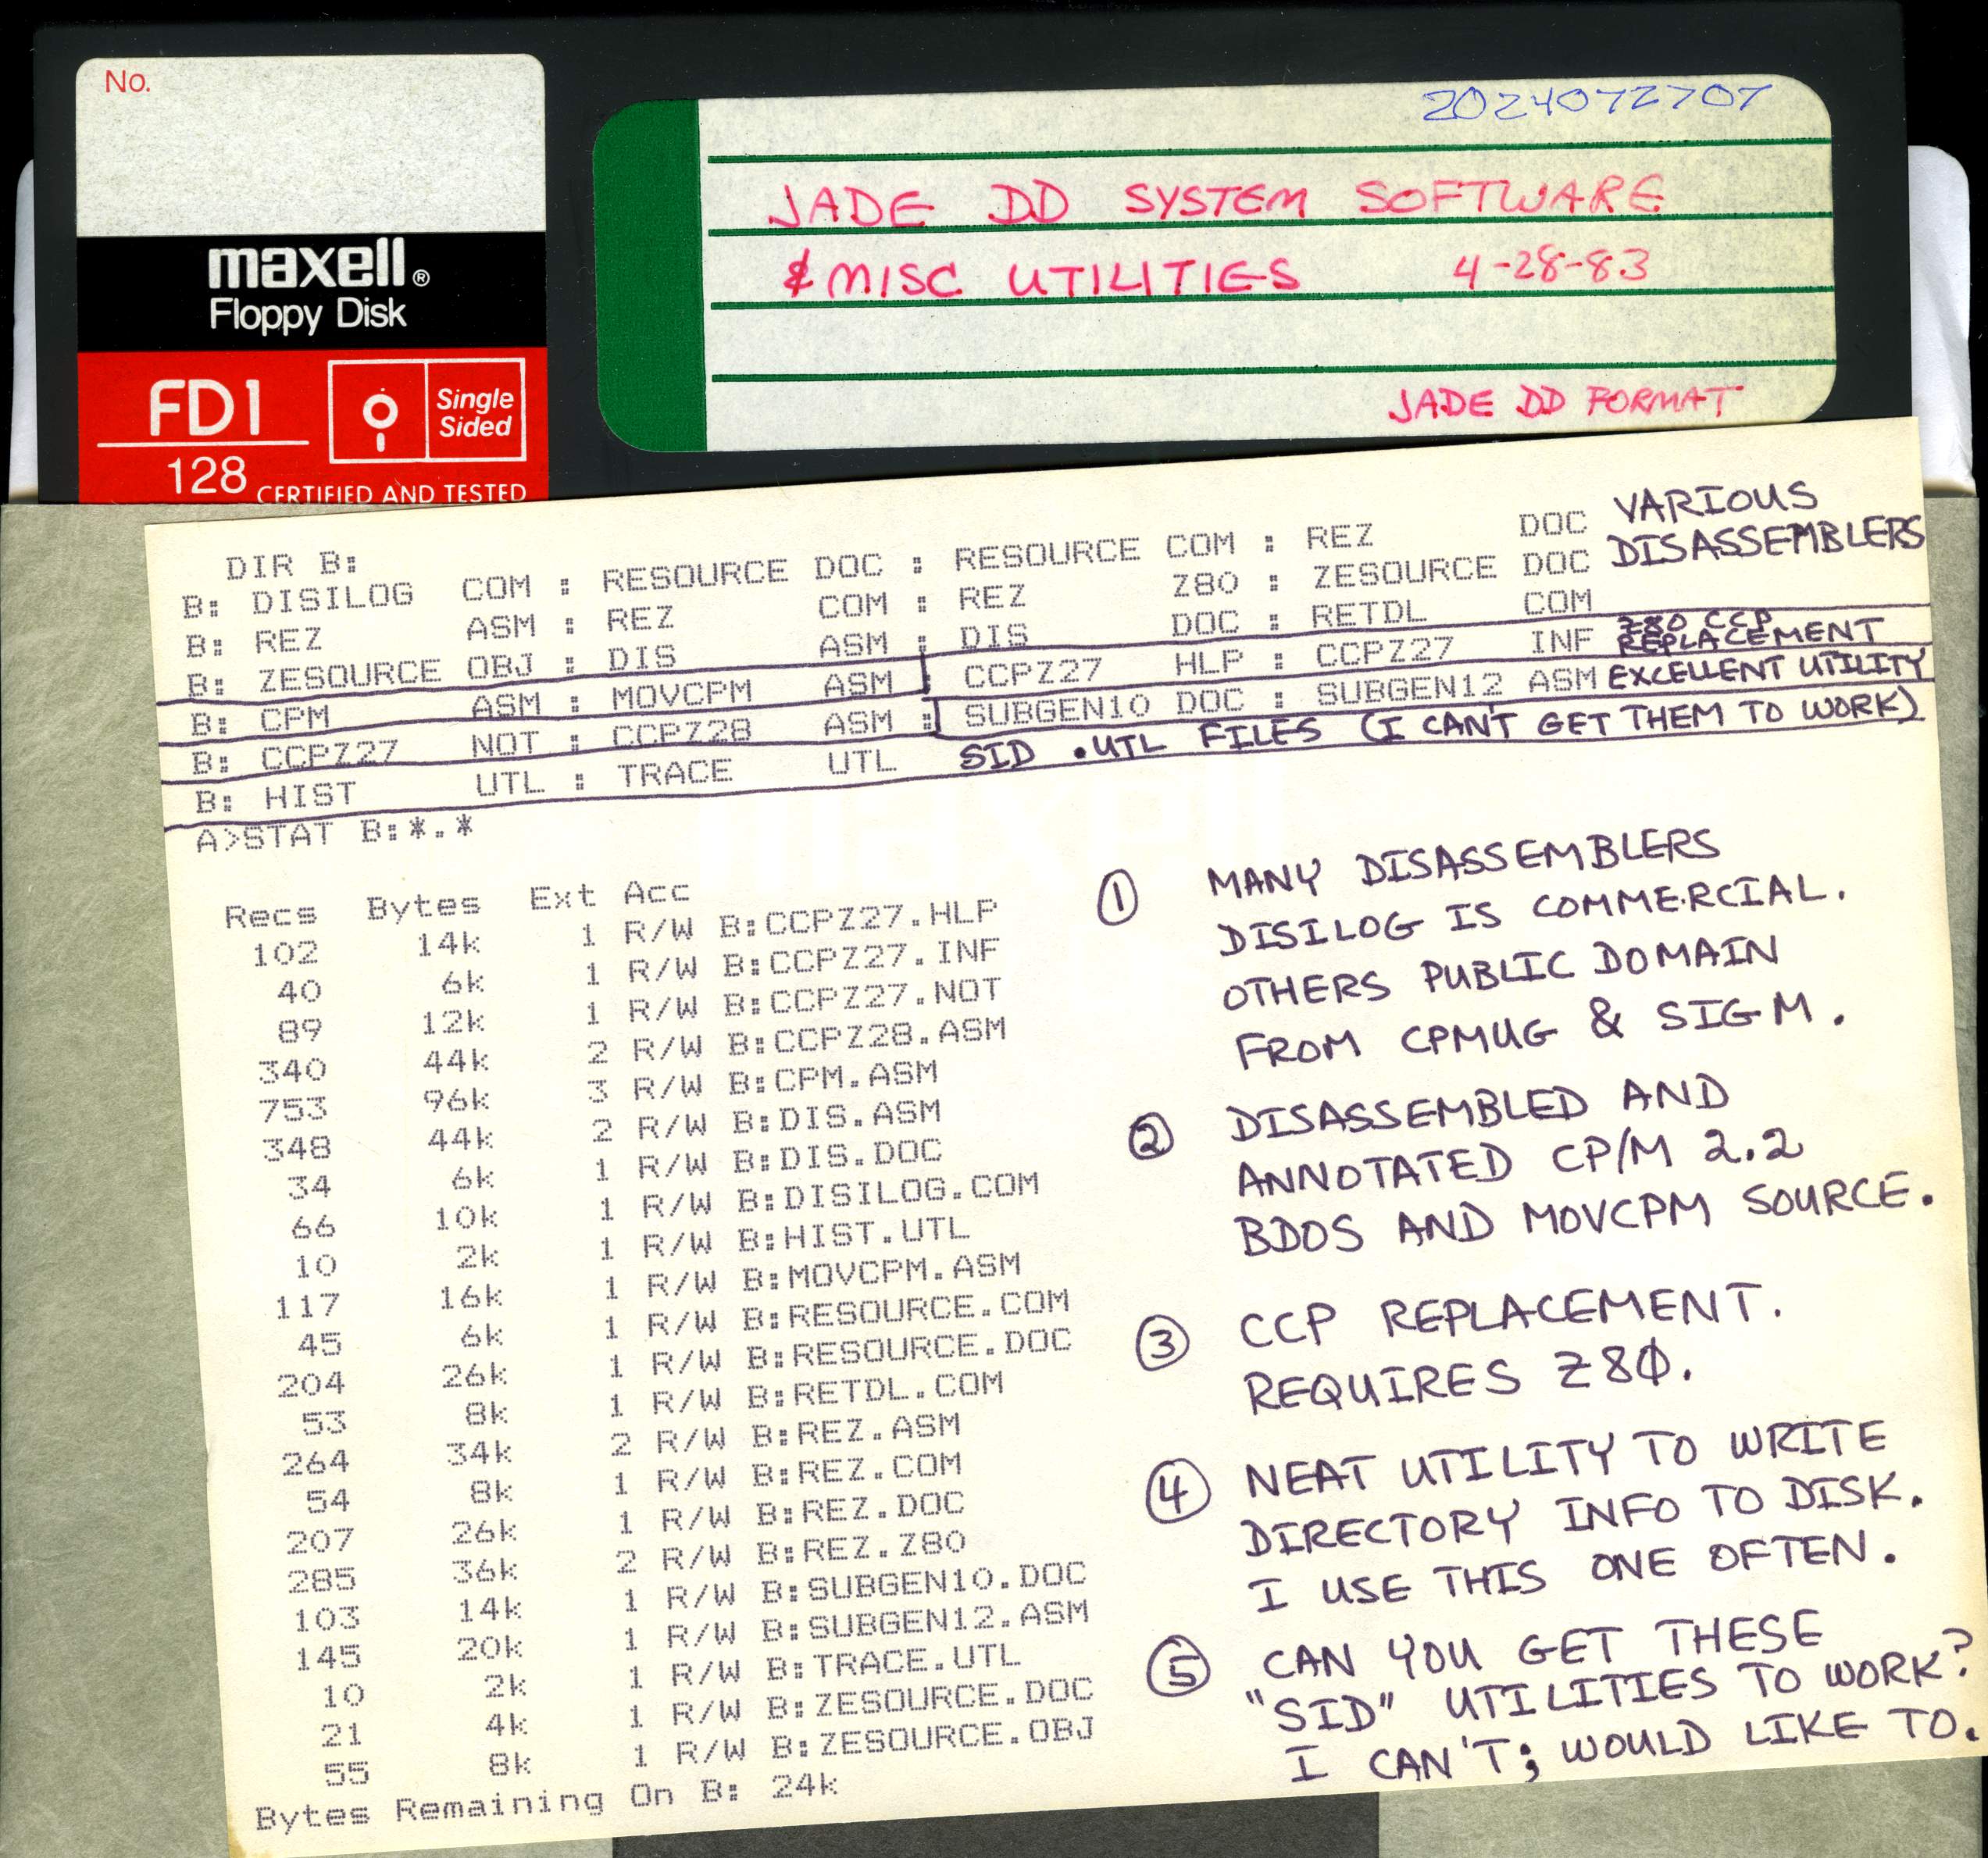 No.
maxell®
Floppy Disk
FD1
128
Single
Sided
CERTIFIED AND TESTED
2024072707
JADE DD SYSTEM SOFTWARE
& MISC UTILITIES 4-28-83
JADE DD FORMAT
DIR B:
B: DISILOG COM : RESOURCE DOC : RESOURCE COM : REZ DOC
B: REZ ASM : REZ COM : REZ Z80 : ZESOURCE DOC
B: ZESOURCE OBJ : DIS ASM : DIS DOC : RETDL COM
B: CPM ASM : MOVCPM ASM : CCPZ27 HLP : CCPZ27 INF
B: CCPZ27 NOT : CCPZ28 ASM : SUBGEN10 DOC : SUBGEN12 ASM
B: HIST UTL : TRACE UTL
VARIOUS
DISASSEMBLERS
Z80 CCP
REPLACEMENT
EXCELLENT UTILITY
SID .UTL FILES (I CAN'T GET THEM TO WORK)
A>STAT B:*.*
Recs Bytes Ext Acc
102 14k 1 R/W B:CCPZ27.HLP
40 6k 1 R/W B:CCPZ27.INF
89 12k 1 R/W B:CCPZ27.NOT
340 44k 2 R/W B:CCPZ28.ASM
753 96k 3 R/W B:CPM.ASM
348 44k 2 R/W B:DIS.ASM
34 6k 1 R/W B:DIS.DOC
66 10k 1 R/W B:DISILOG.COM
10 2k 1 R/W B:HIST.UTL
117 16k 1 R/W B:MOVCPM.ASM
45 6k 1 R/W B:RESOURCE.COM
204 26k 1 R/W B:RESOURCE.DOC
53 8k 1 R/W B:RETDL.COM
264 34k 2 R/W B:REZ.ASM
54 8k 1 R/W B:REZ.COM
207 26k 1 R/W B:REZ.DOC
285 36k 2 R/W B:REZ.Z80
103 14k 1 R/W B:SUBGEN10.DOC
145 20k 1 R/W B:SUBGEN12.ASM
10 2k 1 R/W B:TRACE.UTL
21 4k 1 R/W B:ZESOURCE.DOC
55 8k 1 R/W B:ZESOURCE.OBJ
Bytes Remaining On B: 24k
① MANY DISASSEMBLERS
DISILOG IS COMMERCIAL.
OTHERS PUBLIC DOMAIN
FROM CPMUG & SIG-M.
② DISASSEMBLED AND
ANNOTATED CP/M 2.2
BDOS AND MOVCPM SOURCE.
③ CCP REPLACEMENT.
REQUIRES Z80.
④ NEAT UTILITY TO WRITE
DIRECTORY INFO TO DISK.
I USE THIS ONE OFTEN.
⑤ CAN YOU GET THESE
"SID" UTILITIES TO WORK?
I CAN'T; WOULD LIKE TO.